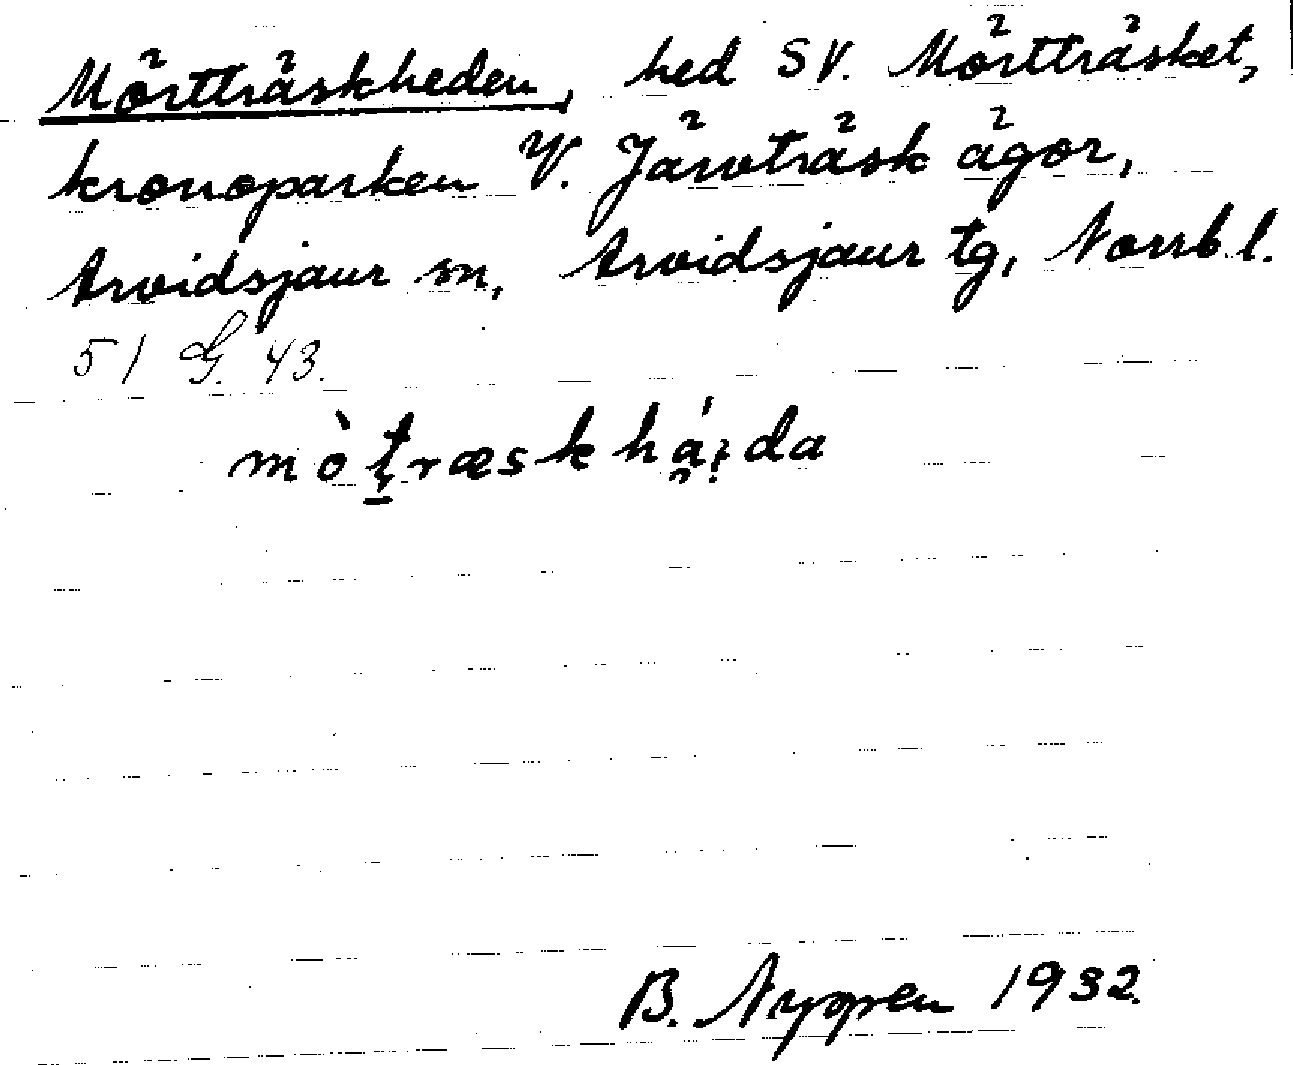 Mörtträskheden, hed SV. Mörtträsket,
kronoparken V. Järvträsk ägor,
Arvidsjaur sn, Arvidsjaur tg, Norrb. l.
51 G. 43.
B. Nyppen 1932.